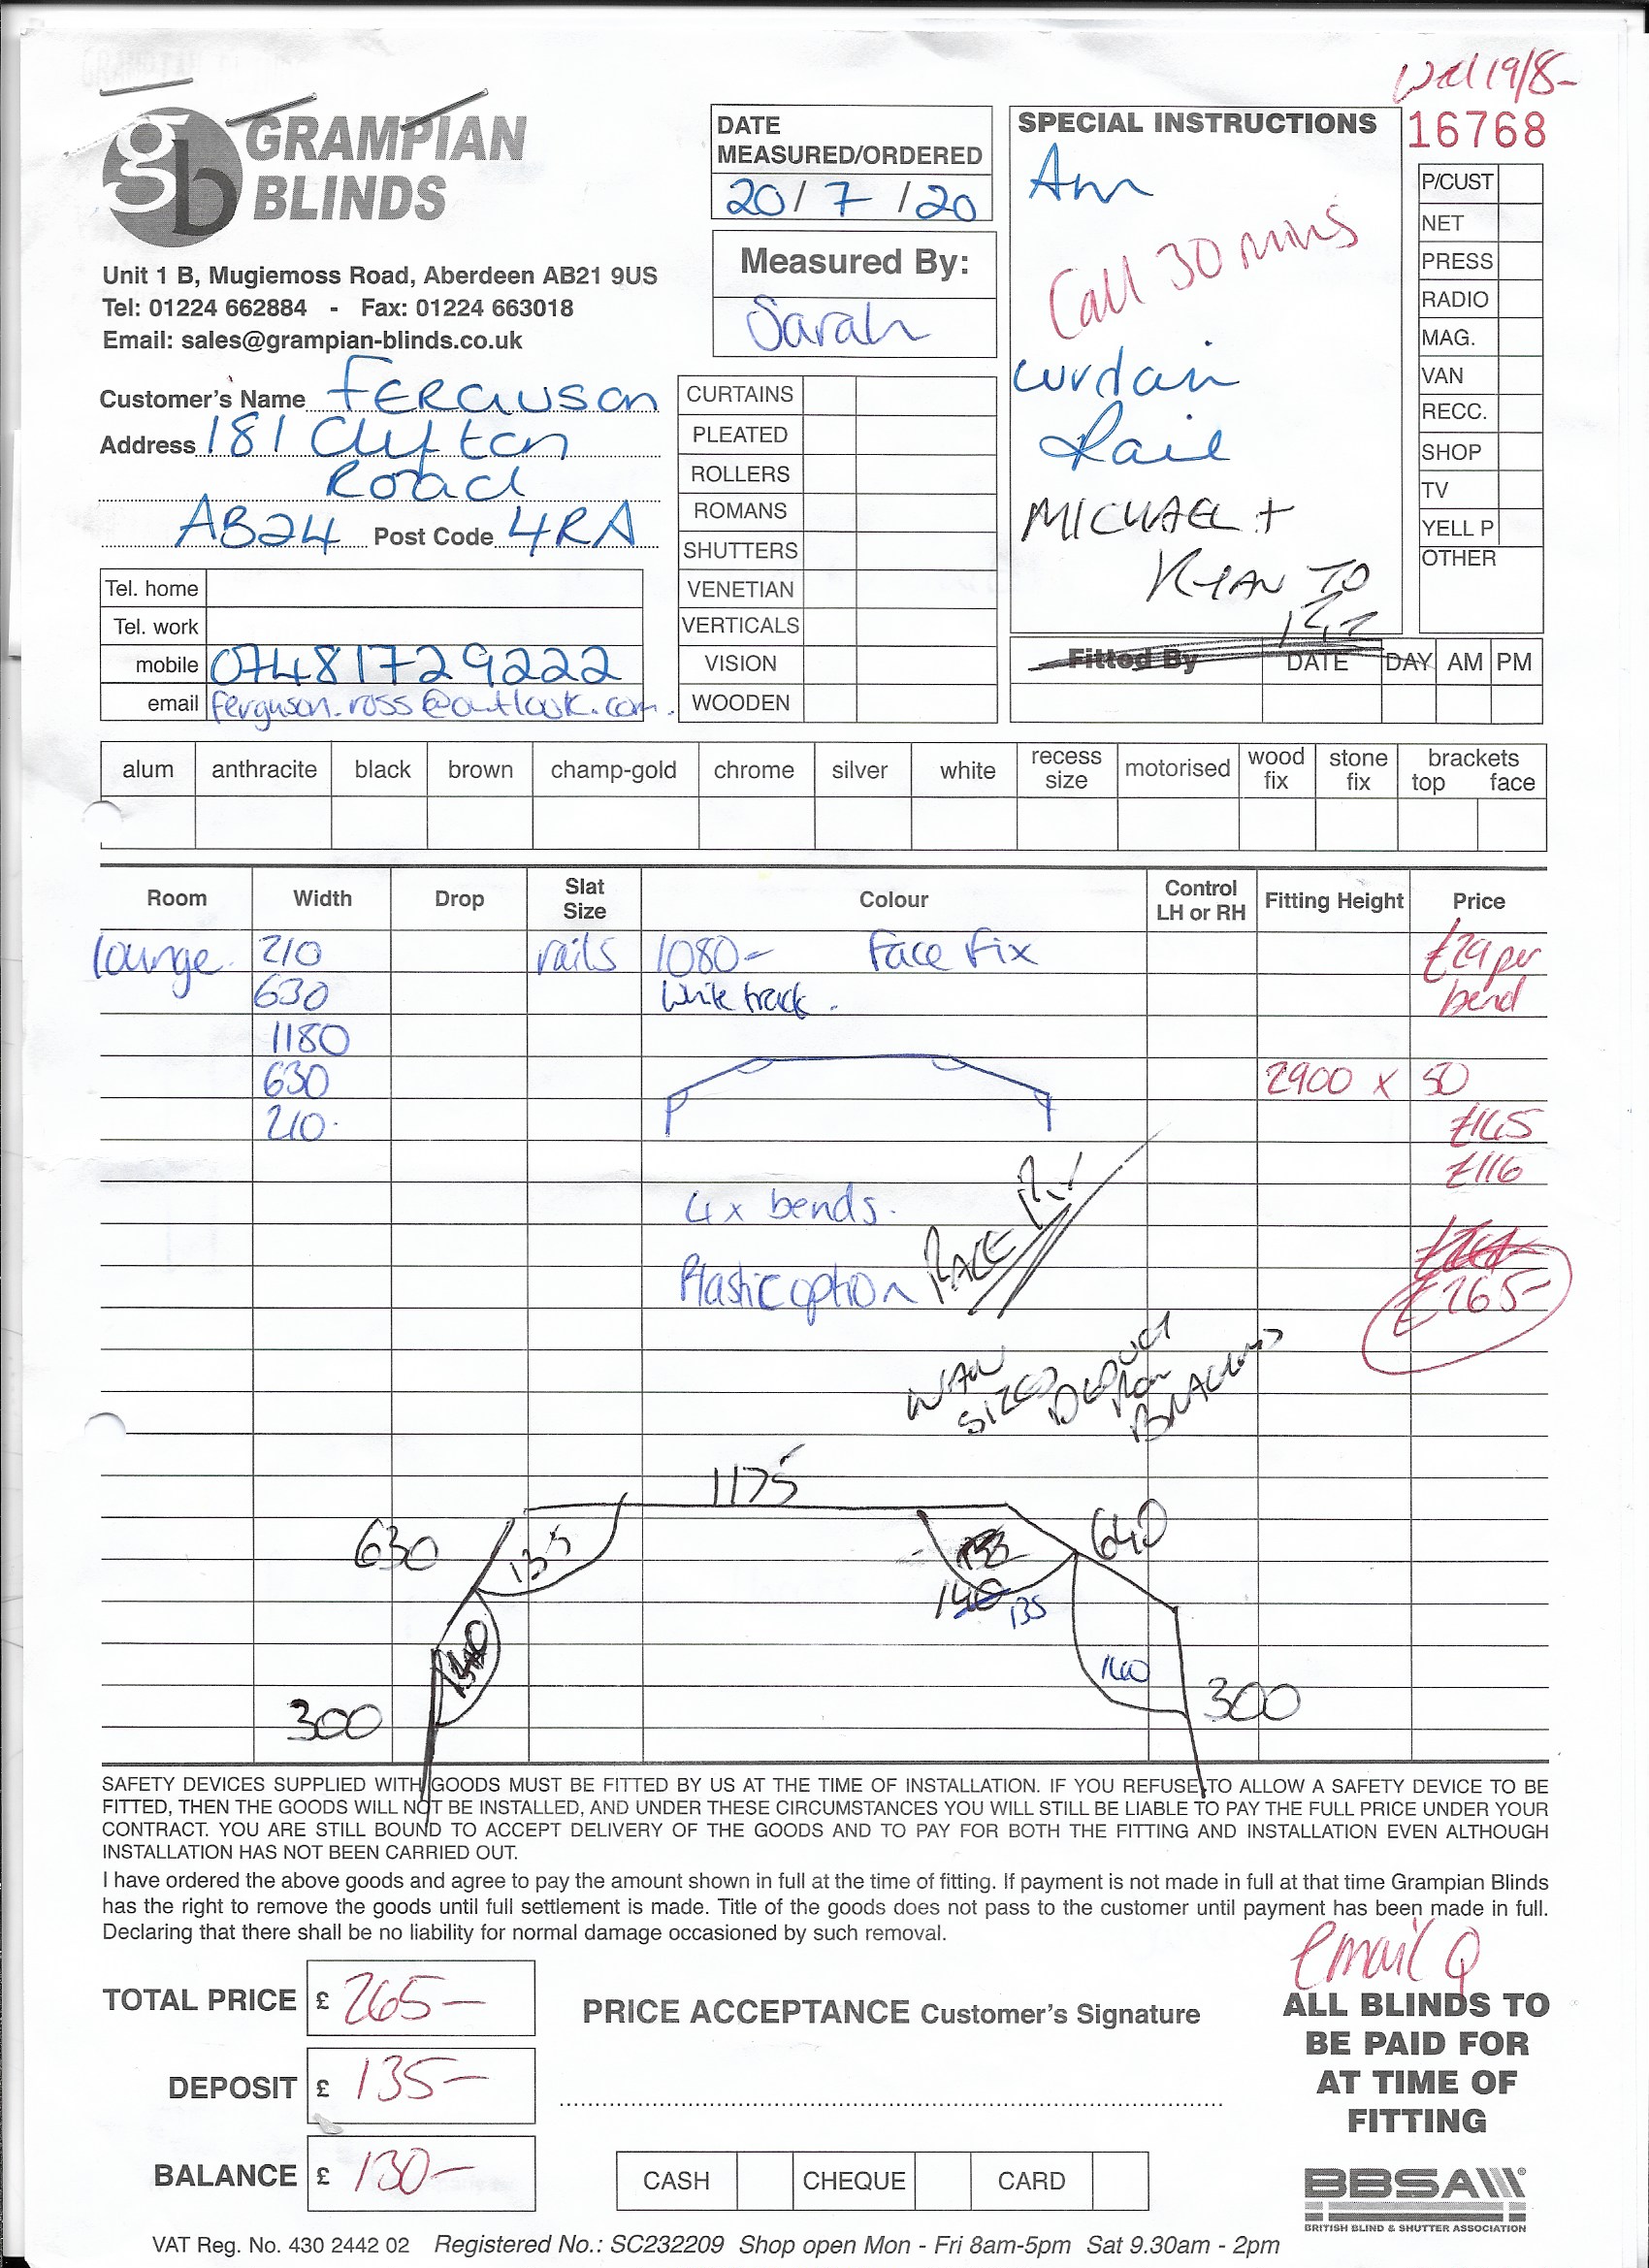 Wed 19/8-
GRAMPIAN
BLINDS
gb
Unit 1 B, Mugiemoss Road, Aberdeen AB21 9US
Tel: 01224 662884 - Fax: 01224 663018
Email: sales@grampian-blinds.co.uk
DATE
MEASURED/ORDERED
20/7/20
Measured By:
Sarah
SPECIAL INSTRUCTIONS
Ann
Call 30 mins
curtain
Rail
MICHAEL +
RYAN TO
16768
P/CUST
NET
PRESS
RADIO
MAG.
VAN
RECC.
SHOP
TV
YELL P
OTHER
Customer's Name Ferguson
Address 181 Clifton
Road
AB24 Post Code 4RA
Tel. home
Tel. work
mobile 07481729222
email ferguson.ross@outlook.com.
CURTAINS
PLEATED
ROLLERS
ROMANS
SHUTTERS
VENETIAN
VERTICALS
VISION
WOODEN
Fitted By DATE DAY AM PM
alum anthracite black brown champ-gold chrome silver white recess size motorised wood fix stone fix brackets top face
Room Width Drop Slat Size Colour Control LH or RH Fitting Height Price
lounge. 210 rails 1080- Face Fix £29 per
630 White track. bend
1180
630 2900 x 50
210. £145
£116
4x bends.
Plastic option
£265-
SIZES DEDUCT
FOR
BRACKETS
1175
630 135 640
140 135
140
300 300
SAFETY DEVICES SUPPLIED WITH GOODS MUST BE FITTED BY US AT THE TIME OF INSTALLATION. IF YOU REFUSE TO ALLOW A SAFETY DEVICE TO BE
FITTED, THEN THE GOODS WILL NOT BE INSTALLED, AND UNDER THESE CIRCUMSTANCES YOU WILL STILL BE LIABLE TO PAY THE FULL PRICE UNDER YOUR
CONTRACT. YOU ARE STILL BOUND TO ACCEPT DELIVERY OF THE GOODS AND TO PAY FOR BOTH THE FITTING AND INSTALLATION EVEN ALTHOUGH
INSTALLATION HAS NOT BEEN CARRIED OUT.
I have ordered the above goods and agree to pay the amount shown in full at the time of fitting. If payment is not made in full at that time Grampian Blinds
has the right to remove the goods until full settlement is made. Title of the goods does not pass to the customer until payment has been made in full.
Declaring that there shall be no liability for normal damage occasioned by such removal.
email Q
TOTAL PRICE £ 265-
DEPOSIT £ 135-
BALANCE £ 130-
PRICE ACCEPTANCE Customer's Signature
CASH CHEQUE CARD
ALL BLINDS TO
BE PAID FOR
AT TIME OF
FITTING
BBSA
BRITISH BLIND & SHUTTER ASSOCIATION
VAT Reg. No. 430 2442 02 Registered No.: SC232209 Shop open Mon - Fri 8am-5pm Sat 9.30am - 2pm